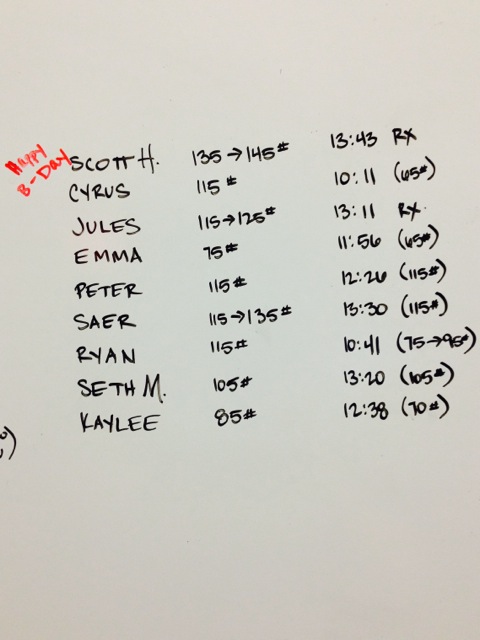 Happy
B-Day
SCOTT H. 135→145# 13:43 RX
CYRUS 115# 10:11 (65#)
JULES 115→125# 13:11 RX.
EMMA 75# 11:56 (65#)
PETER 115# 12:26 (115#)
SAER 115→135# 13:30 (115#)
RYAN 115# 10:41 (75→95#)
SETH M. 105# 13:20 (105#)
KAYLEE 85# 12:38 (70#)